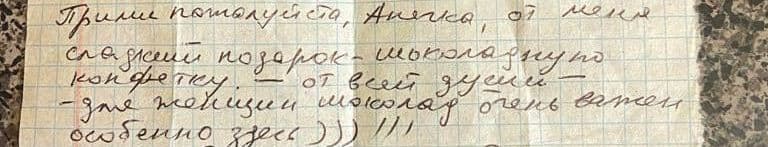 Прими пожалуйста, Анячка, от меня
сладкий подарок - шоколадную
конфетку. — от всей души —
- для женщин шоколад очень важен
особенно здесь ))) !!!